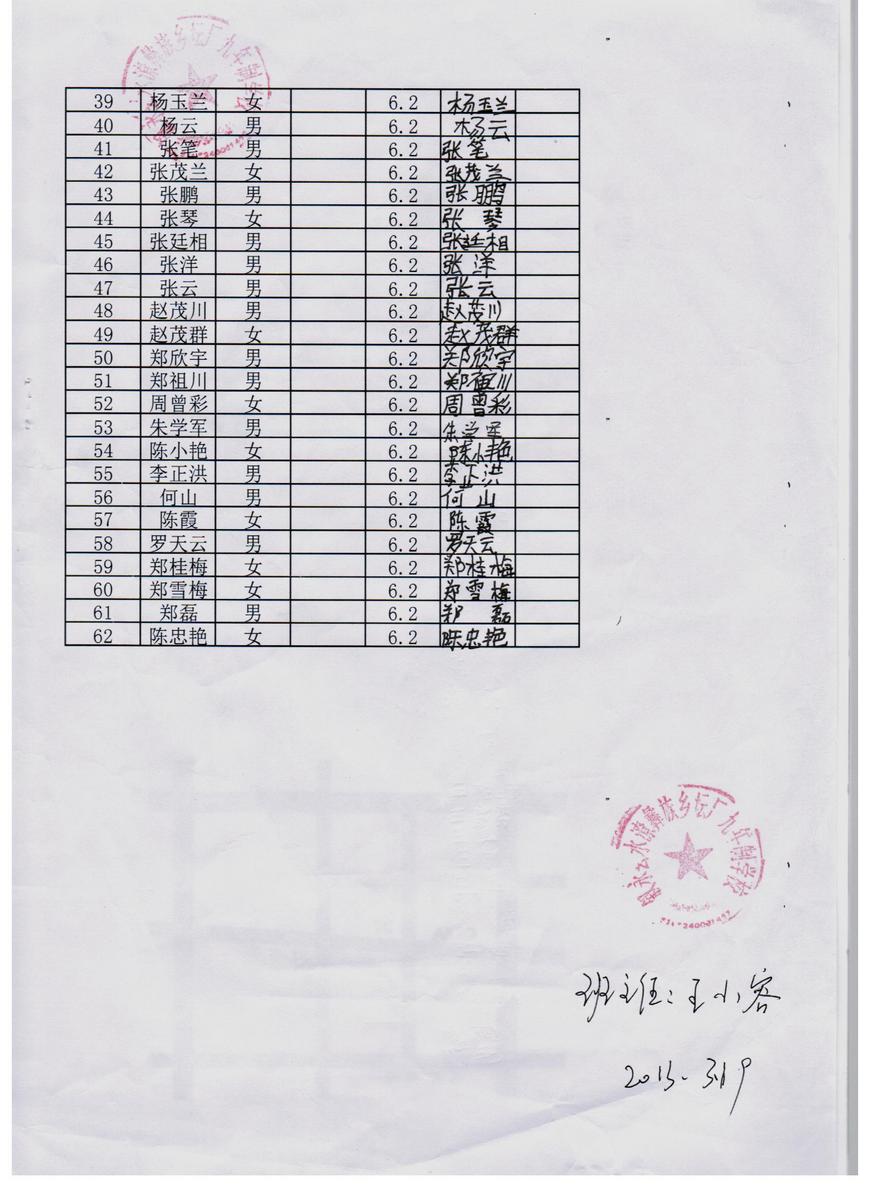 叙永县水潦彝族乡坛厂九年制学校
39 杨玉兰 女 6.2 杨玉兰
40 杨云 男 6.2 杨云
41 张笔 男 6.2 张笔
42 张茂兰 女 6.2 张茂兰
43 张鹏 男 6.2 张鹏
44 张琴 女 6.2 张琴
45 张廷相 男 6.2 张廷相
46 张洋 男 6.2 张洋
47 张云 男 6.2 张云
48 赵茂川 男 6.2 赵茂川
49 赵茂群 女 6.2 赵茂群
50 郑欣宇 男 6.2 郑欣宇
51 郑祖川 男 6.2 郑祖川
52 周曾彩 女 6.2 周曾彩
53 朱学军 男 6.2 朱学军
54 陈小艳 女 6.2 陈小艳
55 李正洪 男 6.2 李正洪
56 何山 男 6.2 何山
57 陈霞 女 6.2 陈霞
58 罗天云 男 6.2 罗天云
59 郑桂梅 女 6.2 郑桂梅
60 郑雪梅 女 6.2 郑雪梅
61 郑磊 男 6.2 郑磊
62 陈忠艳 女 6.2 陈忠艳
叙永县水潦彝族乡坛厂九年制学校
班主任:王小容
2013.3.19